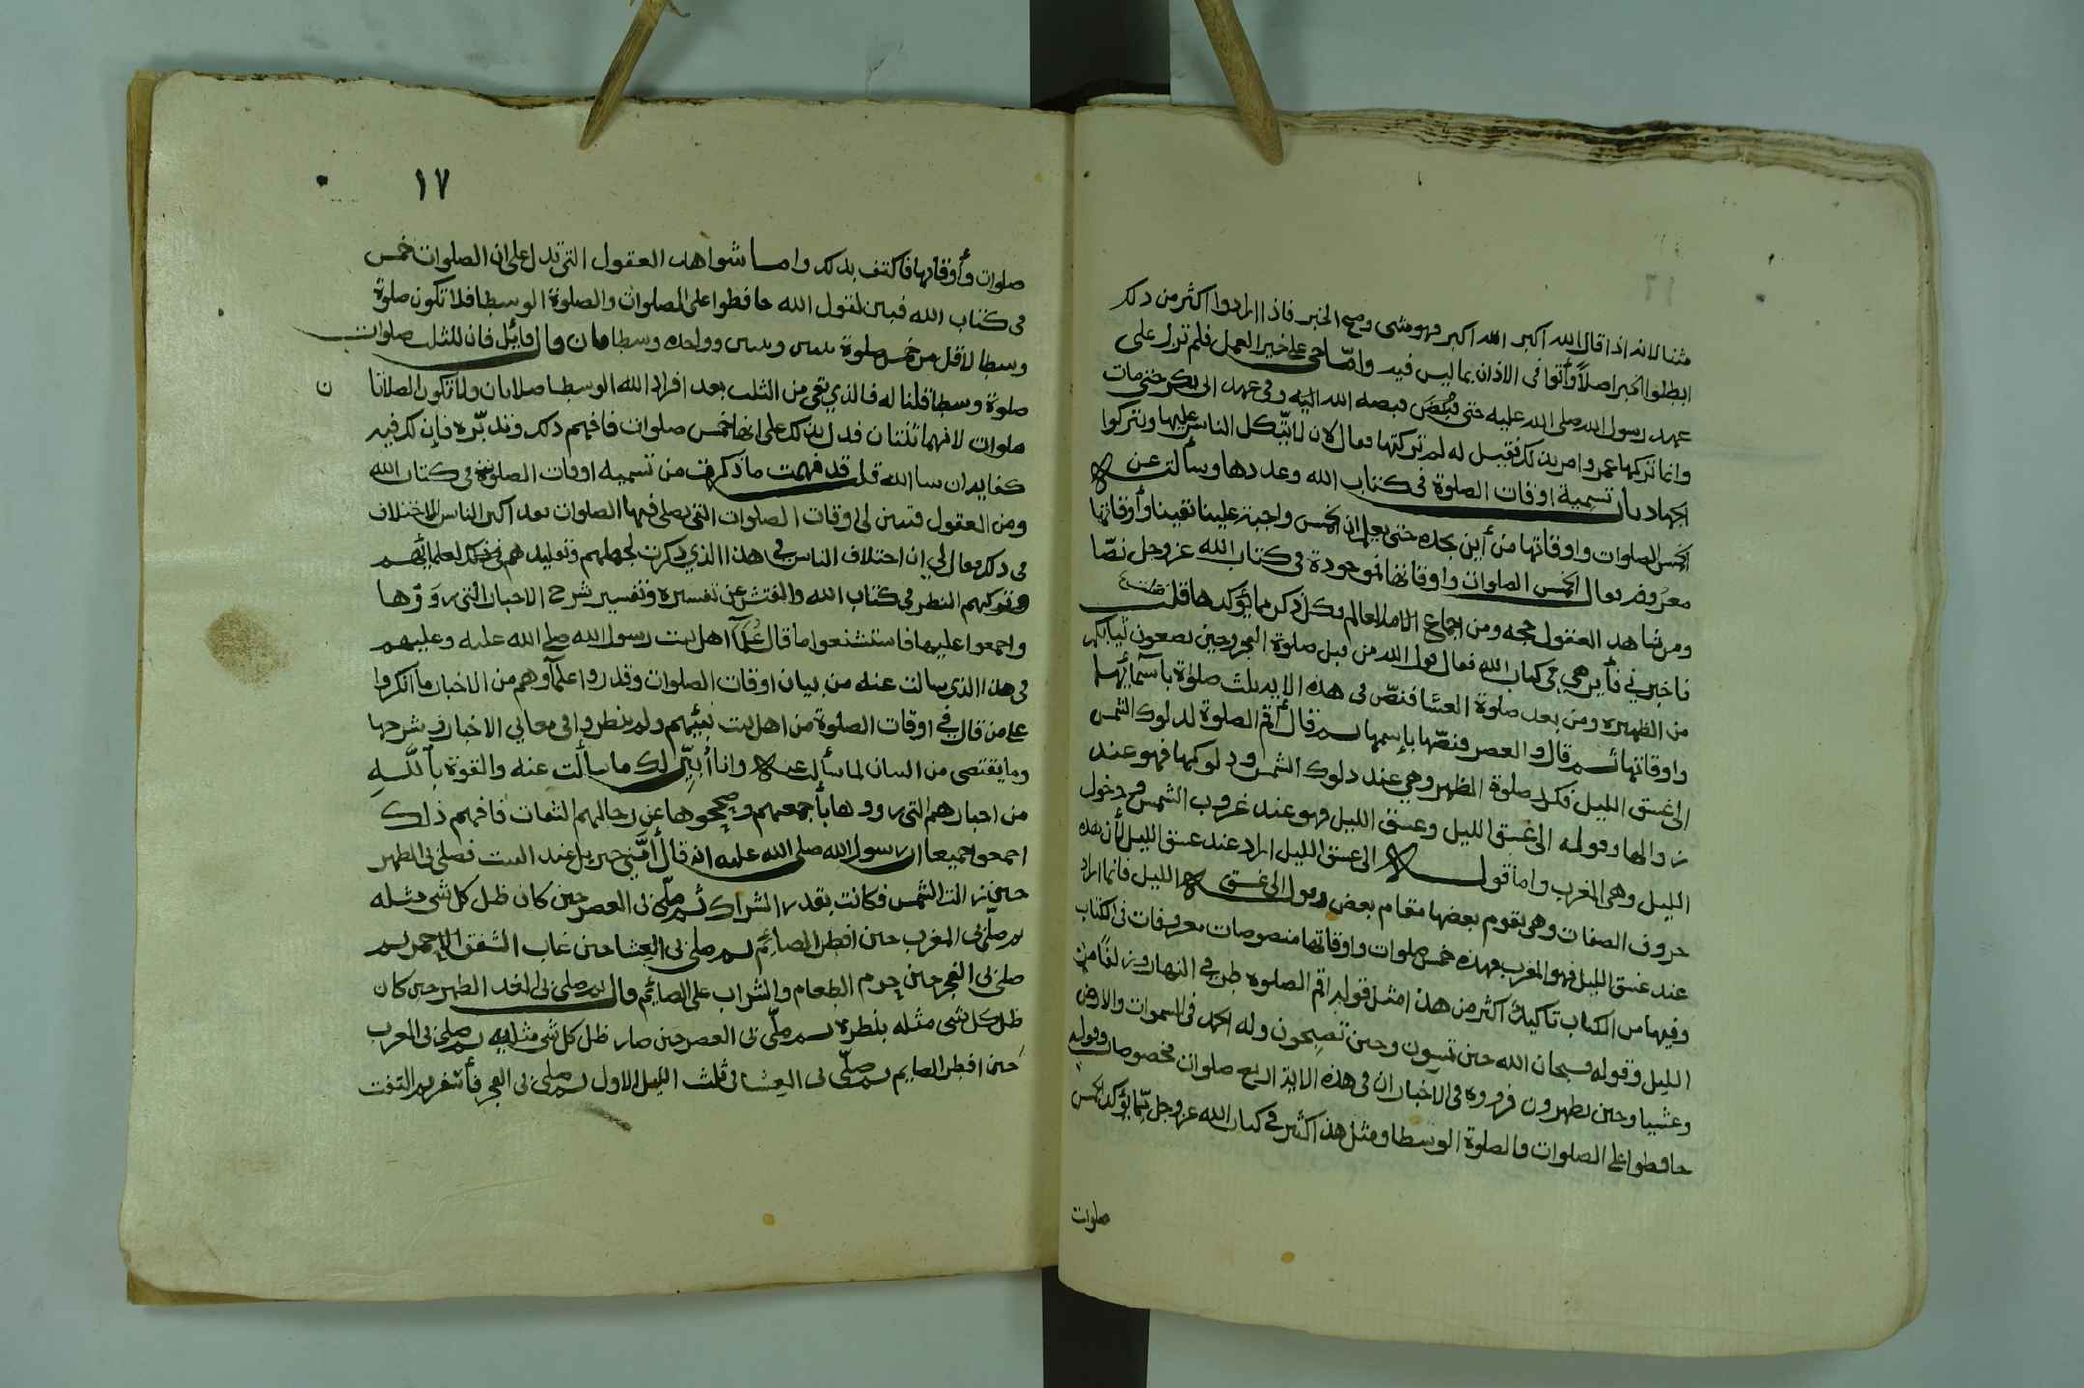 مثنا لانه اذا قال الله اكبر الله اكبر فهو مثنى وصح الخبر فاذا ارادوا اكثر من ذلك
ابطلوا الخبر اصلا وأتوا فى الاذان بما ليس فيه وامّا حى على خير العمل فلم تزل على
عهد رسول الله صلى الله عليه حتى قبضه الله اليه وفى عهد ابى بكر حتى مات
وانما تركها عمر وامر بذلك فقيل له لم تركتها فقال لان لا يتكل الناس عليها ويتركوا
الجهاد باب تسمية اوقات الصلوة فى كتاب الله وعددها وسألت عن
الخمس الصلوات واوقاتها من أين نجده حتى يعلم ان الخمس واجبة علينا يقينا وأوقاتها
معروفه فقال الخمس الصلوات واوقاتها موجودة فى كتاب الله عز وجل نصّا
ومن شاهد العقول حجه ومن اجماع الامه العالم بكل ذكر مما يؤكدها قلت
فاخبرني فأين هي فى كتاب الله فقال قول الله من قبل صلوة الفجر وحين تضعون ثيابكم
من الظهيره ومن بعد صلوة العشا فنصّ فى هذه الايه ثلث صلوة بأسمائها
واوقاتها ثم قال والعصر فنصّها بإسمها ثم قال أقم الصلوة لدلوك الشمس
الى غسق الليل فذكر صلوة الظهر وهي عند دلوك الشمس ودلوكها فهو عند
زوالها وقوله الى غسق الليل وغسق الليل فهو عند غروب الشمس ودخول
الليل وهى المغرب واما قول الى غسق الليل اراد عند غسق الليل لأن هذه
حروف الصفات وهى يقوم بعضها مقام بعض وقول الى غسق الليل فانما اراد
عند غسق الليل فهو المغرب فهذه خمس صلوات واوقاتها منصوصات معروفات فى الكتاب
وفيها من الكتاب تاكيدٌ اكثر من هذا مثل قوله اقم الصلوة طرفي النهار وزلفًا من
الليل وقوله فسبحان الله حين تمسون وحين تصبحون وله الحمد فى السموات والارض
وعشيا وحين تظهرون فروي فى الاخبار ان فى هذه الاية اربع صلوات مخصوصات وقوله
حافظوا على الصلوات والصلوة الوسطا ومثل هذا كثير فى كتاب الله عز وجل مما يؤكد الخمس
صلوات
١٧
صلوات وأوقاتها فاكتف بذلك واما شواهد العقول التى تدل على ان الصلوات خمس
فى كتاب الله فبين لقول الله حافظوا على الصلوات والصلوة الوسطا فلا تكون صلوة
وسطا لاقل من خمس صلوة ثنتين وثنتين وواحده وسطا فان قال قائل فان لثلث صلوات
صلوة وسطا قلنا له فالذي بقى من الثلث بعد افراد الله الوسطا صلاتان ولا تكون الصلاتان
صلوات لانهما ثنتان فدل بذلك على انها خمس صلوات فافهم ذلك وتدبّره فإن لك فيه
كفايه ان شا الله قلت قد فهمت ما ذكرت من تسمية اوقات الصلوة فى كتاب الله
ومن العقول فبين لى اوقات الصلوات التى يصلى فيها الصلوات فقد اكثر الناس الاختلاف
فى ذلك فقال لي ان اختلاف الناس في هذا الذي ذكرت لجهلهم وتقليدهم فى ذلك لعلمائهم
وتركهم النظر فى كتاب الله والفتش عن تفسيره وتفسير شرح الاخبار التى رووها
واجمعوا عليها فاستشنعوا ما قال علما اهل بيت رسول الله صلى الله عليه وعليهم
فى هذا الذي سالت عنه من بيان اوقات الصلوات وقد روا علماؤهم من الاخبار ما انكروا
على من قال في اوقات الصلوة من اهل بيت نبيّهم ولم ينظروا فى معاني الاخبار وشرحها
وما يقتضى من البيان لما سألت عنه وانا أبيّن لك ما سألت عنه والقوة بالله
من اخبارهم التى رووها بأجمعهم وصححوها عن رجالهم الثقات فافهم ذلك
اجمعوا جميعا ان رسول الله صلى الله عليه انه قال أمّني جبريل عند البيت فصلى بى الظهر
حين زالت الشمس فكانت بقدر الشراك ثم صلّى بى العصر حين كان ظل كل شى مثله
ثم صلّى بى المغرب حين افطر الصائم ثم صلى بى العشا حين غاب الشفق الاحمر ثم
صلى بى الفجر حين حرم الطعام والشراب على الصائم وقال ثم صلى بى الغد الظهر حين كان
ظل كل شى مثله بنظرة ثم صلّى بى العصر حين صار ظل كل شى مثليه ثم صلى بى المغرب
حين افطر الصايم ثم صلّى بى العشا فى ثلث الليل الاول ثم صلى بى الفجر فأسفر ثم التفت